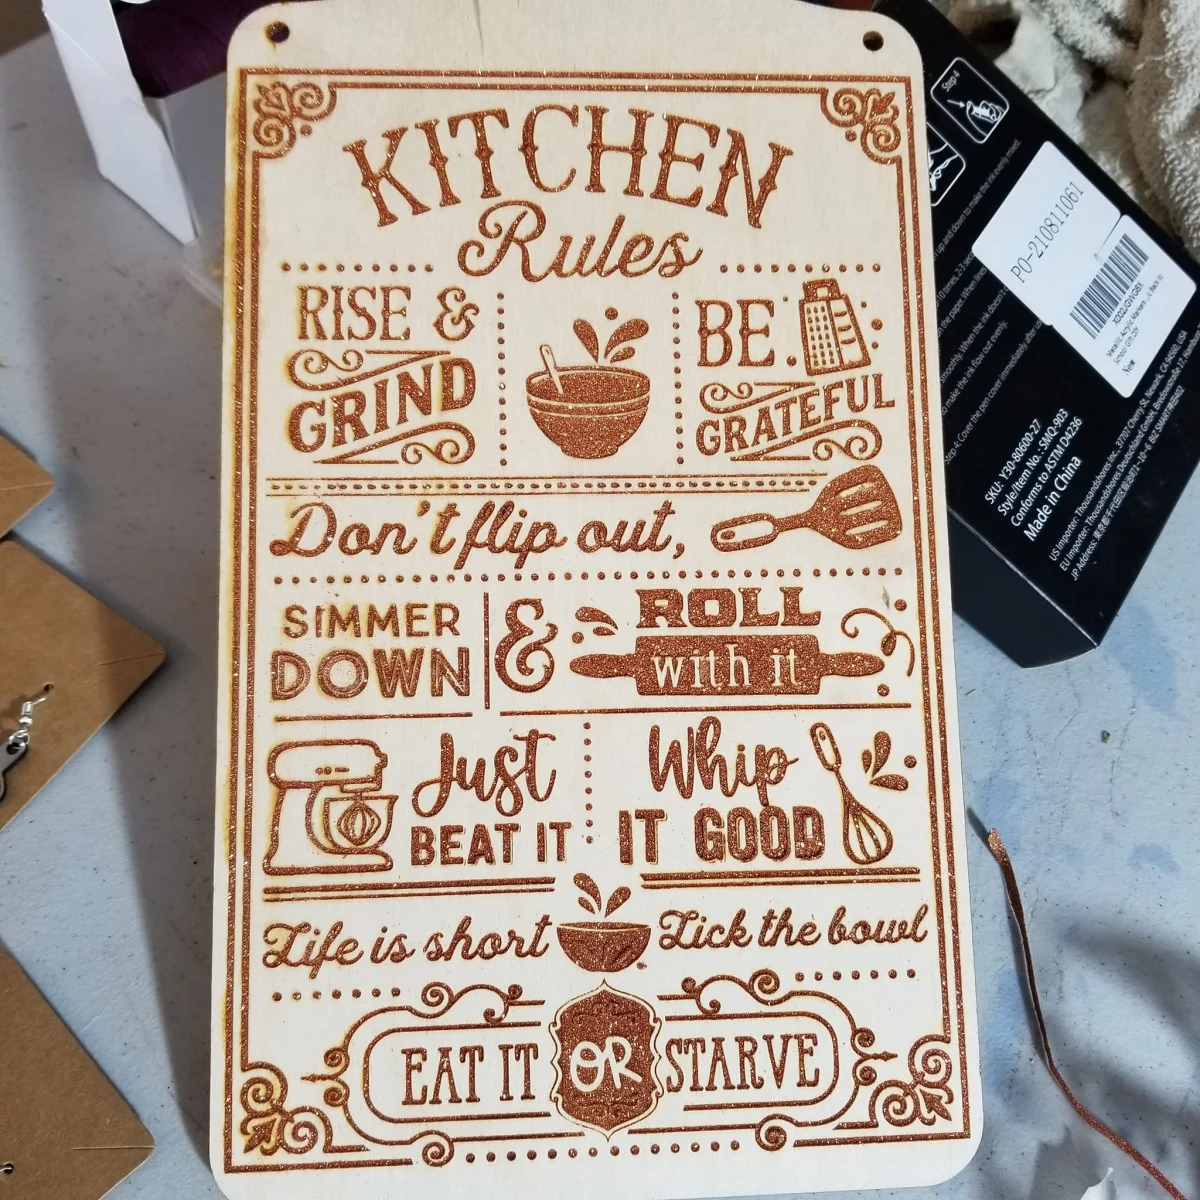 KITCHEN
Rules
RISE &
GRIND
BE
GRATEFUL
Don't flip out,
SIMMER
DOWN
&
ROLL
with it
Just
BEAT IT
Whip
IT GOOD
Life is short
Lick the bowl
EAT IT OR STARVE
Step 4
PO-210811061
New
SKU: Y30-80600-27
Style/Item No.: SMQ-903
Conforms to ASTM D4236
Made in China